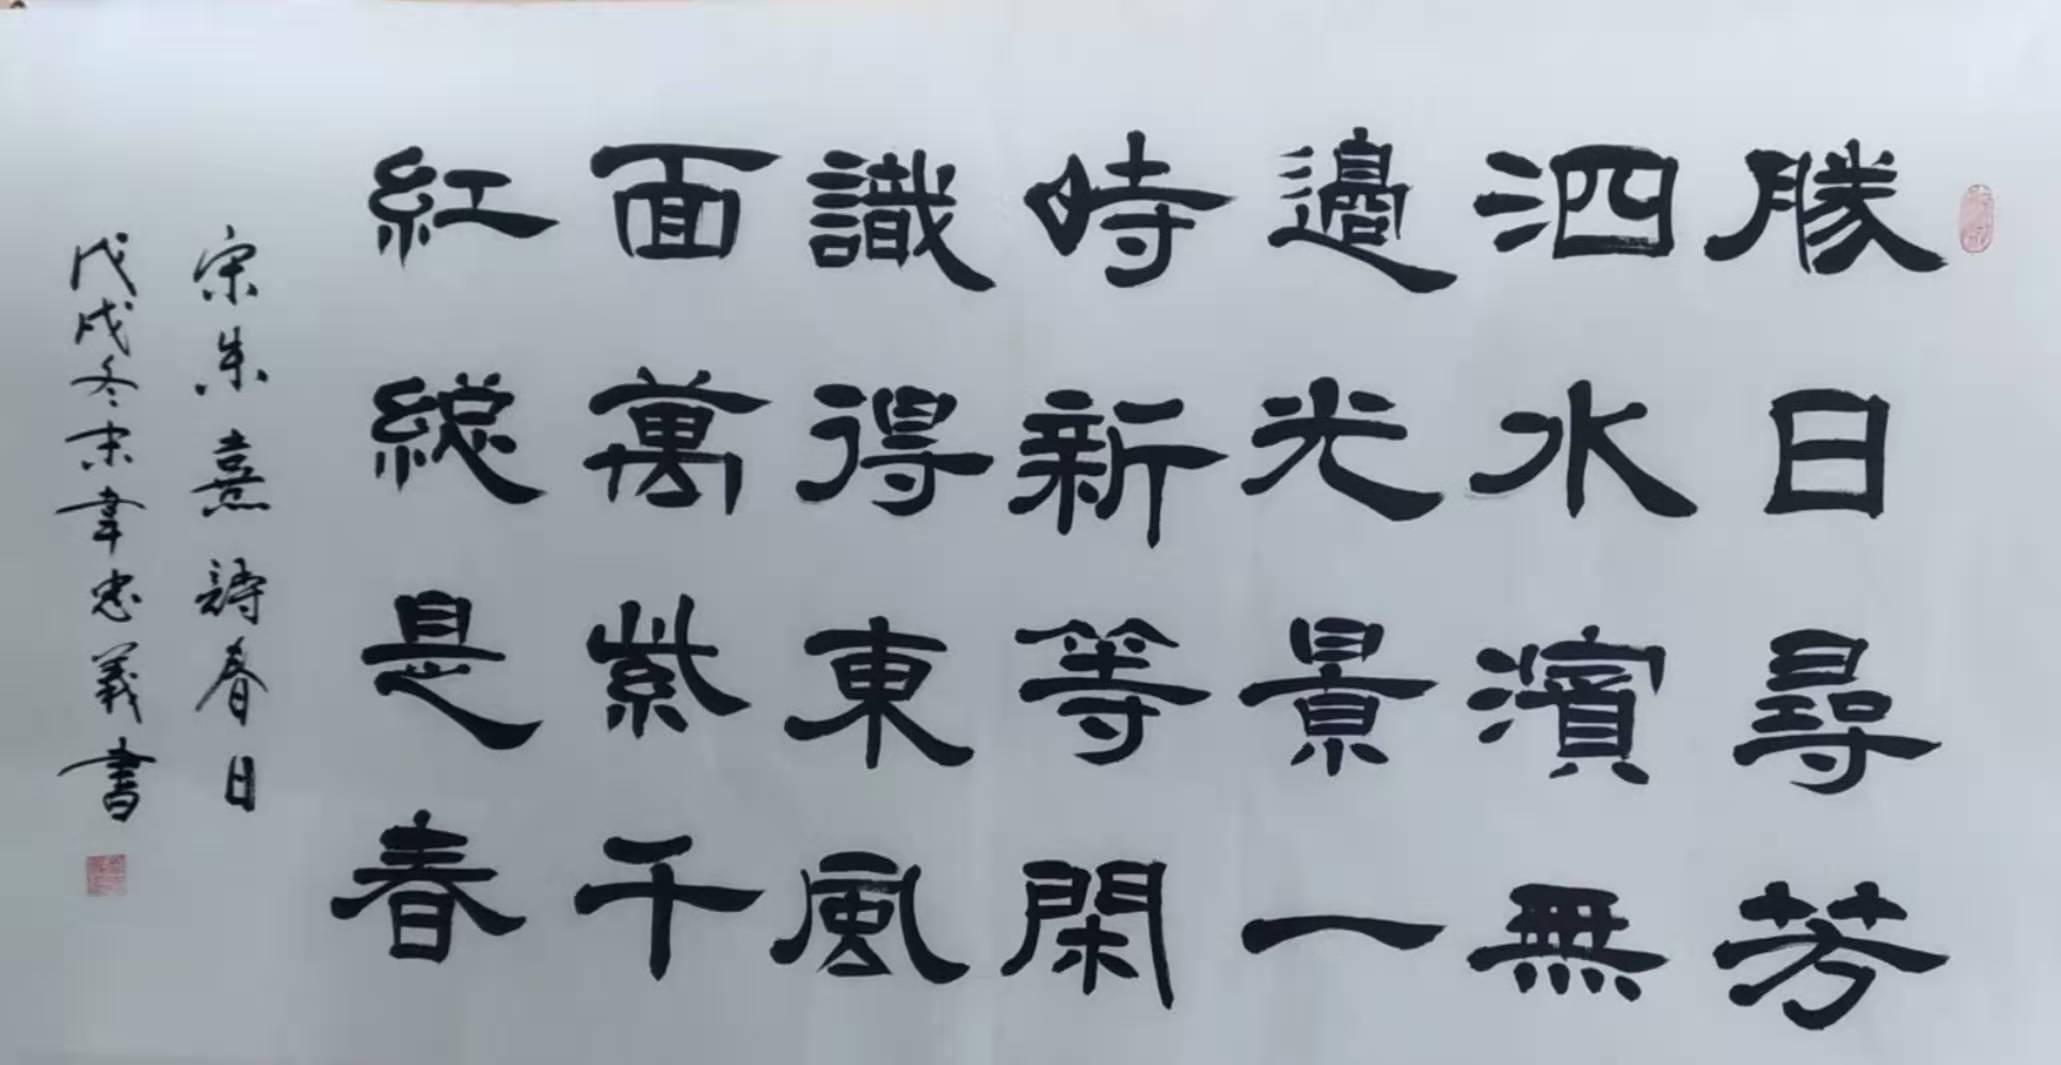 勝日尋芳
泗水濱無
邊光景一
時新等閑
識得東風
面萬紫千
紅總是春
宋朱熹詩春日
戊戌冬末韋忠義書